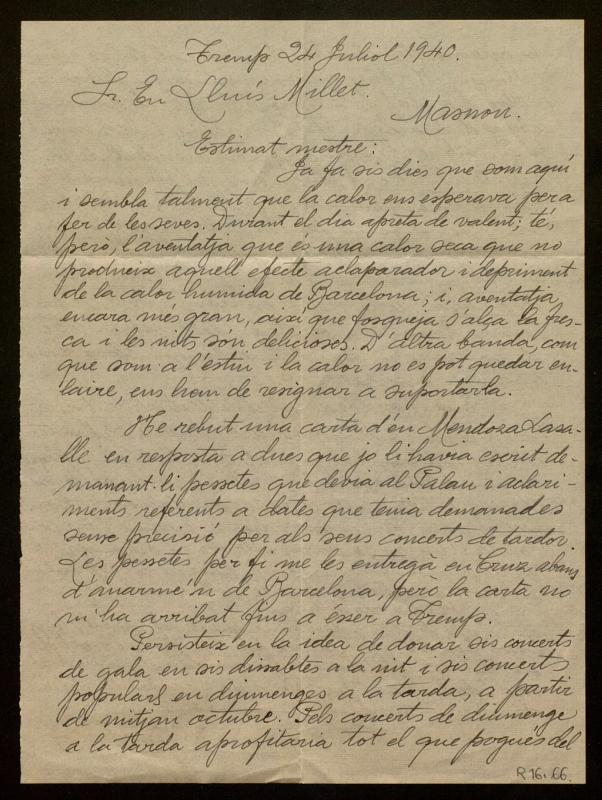 Tremp 24 Juliol 1940.
Sr. En Lluís Millet.
Masnou.
Estimat mestre:
Ja fa sis dies que som aquí
i sembla talment que la calor ens esperava per a
fer de les seves. Durant el dia apreta de valent; té,
però, l'aventatja que és una calor seca que no
produeix aquell efecte aclaparador i depriment
de la calor humida de Barcelona; i, aventatja
encara més gran, així que fosqueja s'alça la fres-
ca i les nits són delicioses. D'altra banda, com
que som a l'estiu i la calor no es pot quedar en-
laire, ens hem de resignar a suportarla.
He rebut una carta d'en Mendoza Lasa-
lle en resposta a dues que jo li havia escrit de-
manant-li pessetes que devia al Palau i aclari-
ments referents a dates que tenia demanades
sense precisió per als seus concerts de tardor.
Les pessetes per fi me les entregà en Cruz abans
d'anarme'n de Barcelona, però la carta no
m'ha arribat fins a ésser a Tremp.
Persisteix en la idea de donar sis concerts
de gala en sis dissabtes a la nit i sis concerts
populars en diumenges a la tarda, a partir
de mitjan octubre. Pels concerts de diumenge
a la tarda aprofitaria tot el que pogués del
R 16.66.